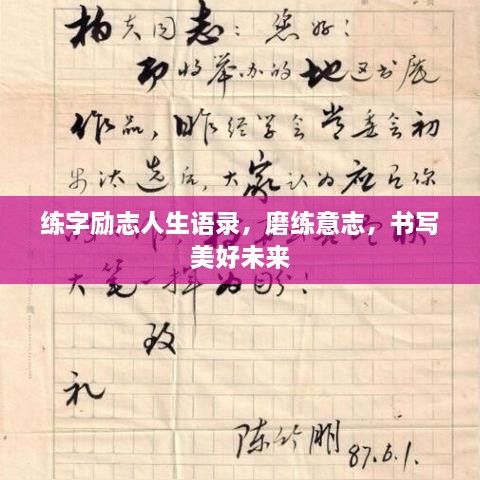 柏夫同志：您好！
即将举办的地区书展
作品，昨经学会常委会初
步汰选后，大家认为应召你
练字励志人生语录，磨练意志，书写
美好未来
大笔一挥为盼！
致
礼
陈竹朋
87.6.1.